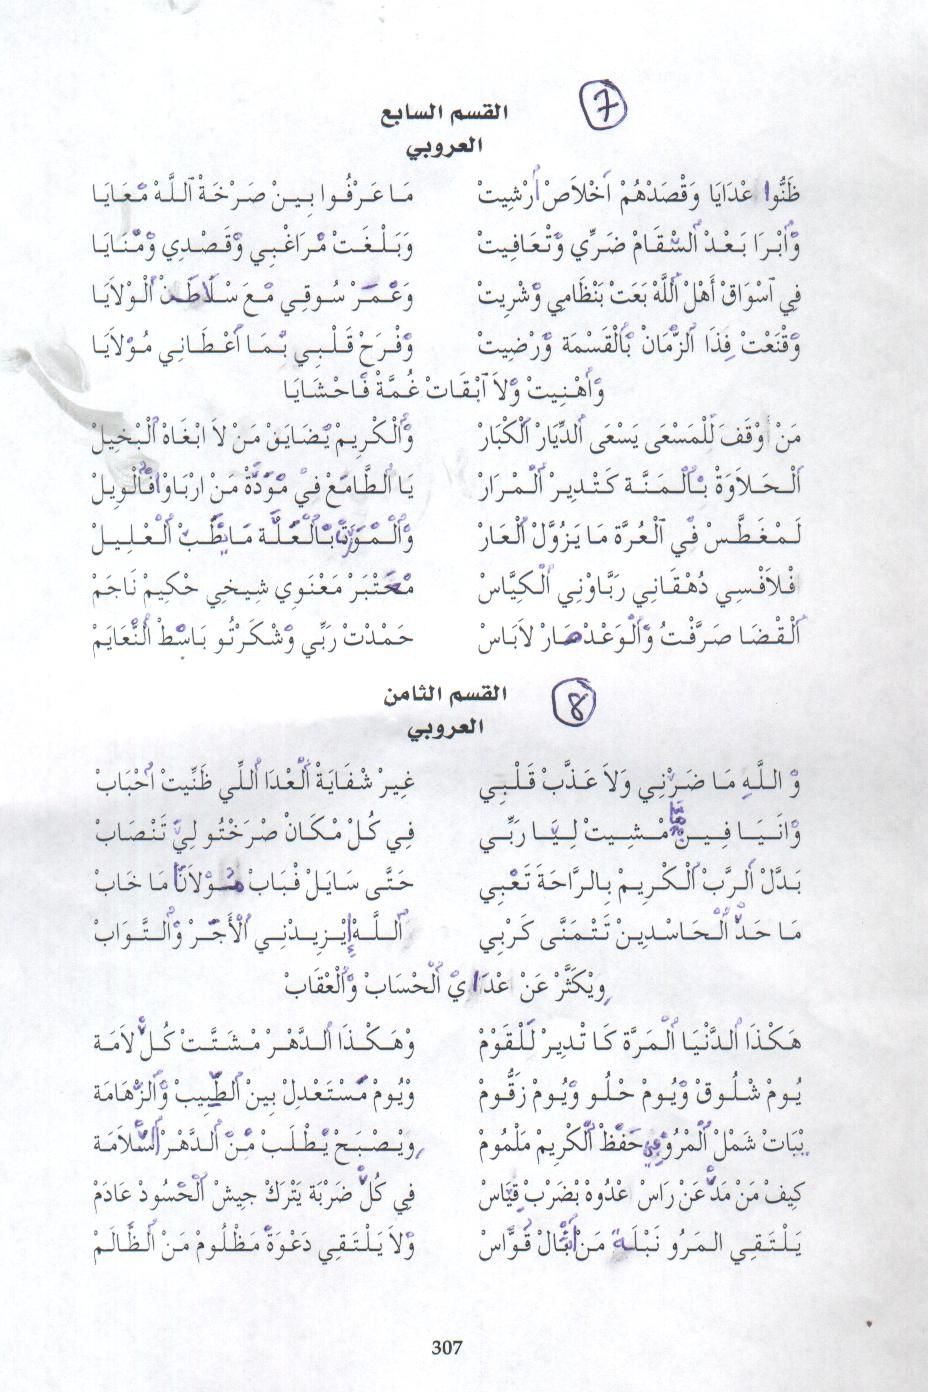 7
القسم السابع
العروبي
ظَنُّوا عْدَايَا وَقْصَدْهُمْ أَخْلَاصْ أَرْشِيتْ مَا عَرْفُوا بِينْ صَرْخَةْ اَللَّهْ مْعَايَا
وَأَبْرَا بَعْدْ اَلسّْقَامْ ضَرِّي وَتْعَافِيتْ وَبَلْغَتْ مْرَاغْبِي وَقَصْدِي وَمْنَايَا
فِي اَسْوَاقْ أَهْلْ اَللَّهْ بَعْتْ بَنْظَامِي وَشْرِيتْ وَعْمَرْ سُوقِي مْعَ سْلَاطَنْ اَلْوَلَايَا
وَقْنَعْتْ فِذَا اَلزّْمَانْ بْالْقَسْمَة وَرْضِيتْ وَفْرَحْ قَلْبِي بْمَا أَعْطَانِي مُوْلَايَا
وَأَهْنِيتْ وْلَا اَبْقَاتْ غُمَّةْ فَاحْشَايَا
مَنْ أَوْقَفْ لَلْمَسْعَى يَسْعَى اَلدِّيَارْ اَلْكْبَارْ وَاَلْكْرِيمْ يْضَايَقْ مَنْ لَا ابْغَاهْ اَلْبْخِيلْ
اَلْحَلَاوَةْ بْاَلْمَنَّة كَتْدِيرْ اَلْمْرَارْ يَا اَلطَّامَعْ فِي مْوَدَّةْ مَنْ ارْبَاوْا فْاَلْوِيلْ
لَمْغَطَّسْ فَي اَلْعُرَّة مَا يَزُوَّلْ اَلْعَارْ وَاَلْمْوَرَّتْ بْاَلْعْلَّة مَا يْطَبّْ اَلْعْلِيلْ
فْلَافْسِي دُهْقَانِي رَبَّاوْنِي اَلْكِيَّاسْ مْخْتَبَرْ مَعْنَوِي شِيخِي حْكِيمْ نَاجَمْ
اَلْقْضَا صَرَّفْتُ وَاَلْوَعْدْ صَارْ لَابَاسْ حَمْدْتْ رَبِّي وَشْكَرْتُو بَاسْطْ اَلنّْعَايَمْ
8
القسم الثامن
العروبي
وَ اللَّهِ مَا ضَرّْنِي وَلَا عَذَّبْ قَلْبِي غِيرْ شْفَايَةْ اَلْعْدَا اَللِّي ظَنِّيتْ اَحْبَابْ
وَانَيَا فِينْمَا مْشِيتْ لِيَّا رَبِّي فِي كُلْ مْكَانْ صْرَخْتُو لِيَّ تَنْصَابْ
بَدَّلْ اَلرَّبْ اَلْكْرِيمْ بِالرَّاحَةْ تَعْبِي حَتَّى سَايَلْ فْبَابْ مُولَانَا مَا خَابْ
مَا حَدّْ اَلْحَاسْدِينْ تَتْمَنَّى كَرْبِي اَللَّهْ إيْزِيدْنِي اَلْأَجَرْ وَاَلتّْوَابْ
وِيْكَثَّرْ عَنْ عْدَايْ اَلْحْسَابْ وَاَلْعْقَابْ
هَكْذَا اَلدَّنْيَا اَلْمَرَّة كَا تْدِيرْ لَلْقَوْمْ وَهَكْذَا اَلدَّهْرْ مْشَتَّتْ كُلّْ لَامَة
يُومْ شْلُوقْ وَيُومْ حْلُو وَيُومْ زَقُّومْ وَيُومْ مَسْتَعْدِلْ بِينْ اَلطِّيبْ وَاَلزّْهَامَة
يْبَاتْ شَمْلْ اَلْمَرُو فِي حَفْظْ اَلْكْرِيمْ مَلْمُومْ وِيْصْبَحْ يْطْلَبْ مْنْ اَلدَّهْرْ اَلسّْلَامَة
كِيفْ مَنْ مَدّْ عَنْ رَاسْ عْدُوهْ بْضَرْبْ قِيَّاسْ فِي كُلّْ ضَرْبَة يَتْرَكْ جِيشْ اَلْحْسُودْ عَادَمْ
يَلْتَقِي المَرُو نَبْلَة مَنْ اَنْبَالْ قَوَّاسْ وَلَا يَلْتَقِي دَعْوَةْ مَظْلُومْ مَنْ اَلظَّالَمْ
307